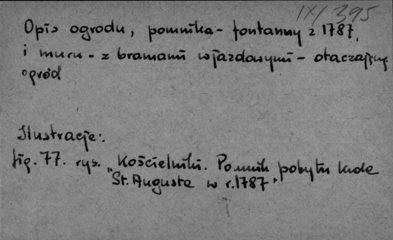 IX/395
Opis ogrodu, pomnika-fontanny z 1787,
i muru - z bramami wjazdowymi - otaczającego
ogród
Ilustracje:
fig. 77. rys. "Kościelniki. Pomnik pobytu króla
St. Augusta w r. 1787".